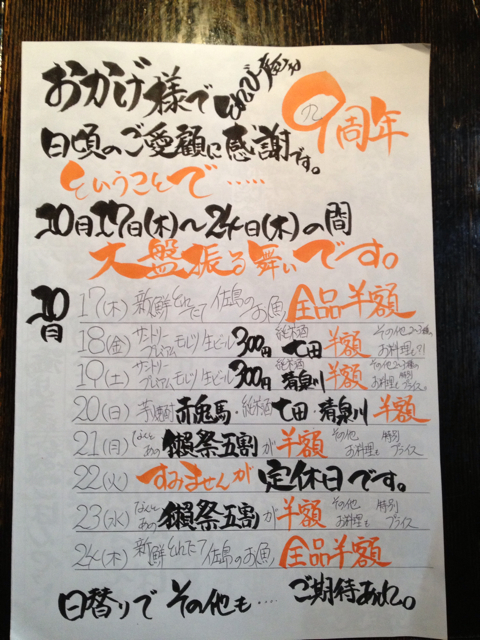 おかげ様で
9周年
日頃のご愛顧に感謝です。
ということで・・・・・
10月17日(木)～24日(木)の間
大盤振る舞いです。
10月
17(木) 新鮮とれたて 佐島のお魚 全品半額
18(金) サントリープレミアムモルツ生ビール 300円 純米酒 七田 半額 その他2〜3種、お料理も?!
19(土) サントリープレミアムモルツ生ビール 300円 純米酒 清泉川 半額 その他2〜3種の お料理も 特別プライス。
20(日) 芋焼酎 赤兎馬・純米酒 七田・清泉川 半額
21(月) なんとあの 獺祭五割が半額 その他お料理も 特別プライス
22(火) すみませんが 定休日です。
23(水) なんとあの 獺祭五割が半額 その他お料理も 特別プライス
24(木) 新鮮とれたて 佐島のお魚 全品半額
日替りで その他も・・・・ ご期待あれ。